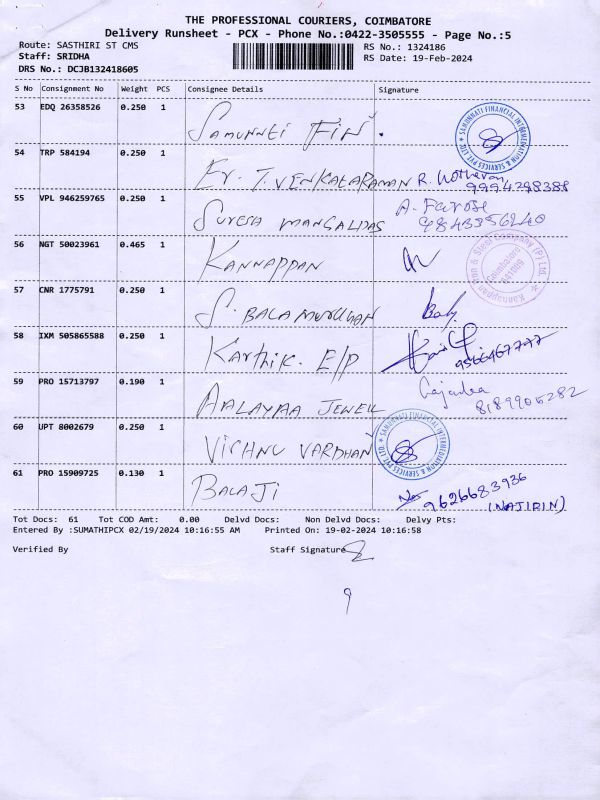 THE PROFESSIONAL COURIERS, COIMBATORE
Delivery Runsheet - PCX - Phone No.:0422-3505555 - Page No.:5
Route: SASTHIRI ST CMS
RS No.: 1324186
Staff: SRIDHA
RS Date: 19-Feb-2024
DRS No.: DCJB132418605
S No Consignment No Weight PCS Consignee Details Signature
53 EDQ 26358526 0.250 1
Samunnti FIN.
SAMUNNATI FINANCIAL INTERMEDIATION & SERVICES PVT LTD.
54 TRP 584194 0.250 1
Er. T. VENKATARAMAN R.
9994298388
55 VPL 946259765 0.250 1
SURESH MANGALDAS A. Fairose
9843356240
56 NGT 50023961 0.465 1
KANNAPPAN
Kannappan & Steel Company (P) Ltd
Coimbatore
641009
57 CNR 1775791 0.250 1
S. BALAMURUGAN Baly.
58 IXM 505865588 0.250 1
Karthik. E/P
9566467747
59 PRO 15713797 0.190 1
AALAYAA JEWELL
8189906282
60 UPT 8002679 0.250 1
VICHNU VARDHAN
SAMUNNATI FINANCIAL INTERMEDIATION & SERVICES PVT LTD.
61 PRO 15909725 0.130 1
BALAJI
9626683936
(NAJIRIN)
Tot Docs: 61 Tot COD Amt: 0.00 Delvd Docs: Non Delvd Docs: Delvy Pts:
Entered By :SUMATHIPCX 02/19/2024 10:16:55 AM Printed On: 19-02-2024 10:16:58
Verified By Staff Signature